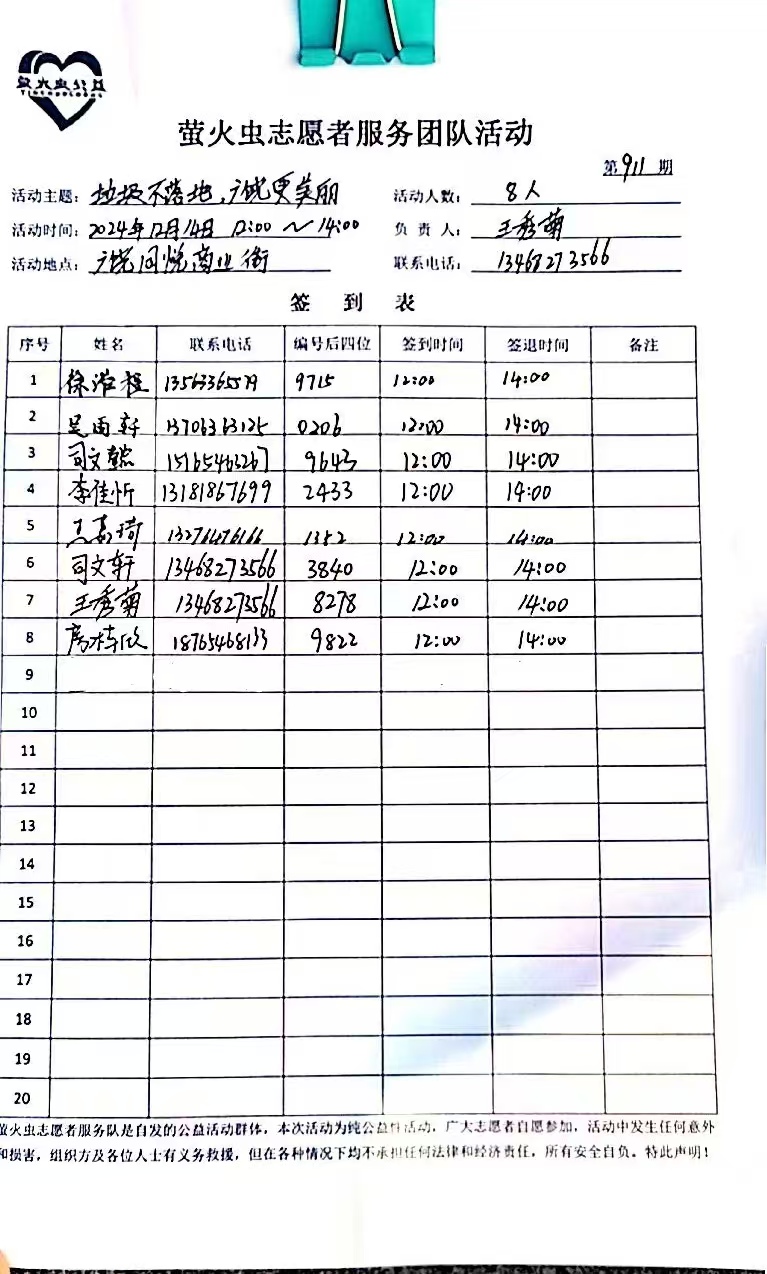 萤火虫公益
萤火虫志愿者服务团队活动
第911期
活动主题：垃圾不落地，广饶更美丽 活动人数：8人
活动时间：2024年12月14日 12:00～14:00 负责人：王秀菊
活动地点：广饶同悦商业街 联系电话：13468273566
签到表
序号 姓名 联系电话 编号后四位 签到时间 签退时间 备注
1 徐浩程 13563365579 9715 12:00 14:00
2 吴雨轩 13706363125 0206 12:00 14:00
3 司文懿 15765463267 9643 12:00 14:00
4 李佳忻 13181867699 2433 12:00 14:00
5 王嘉琦 13276476166 1352 12:00 14:00
6 司文轩 13468273566 3840 12:00 14:00
7 王秀菊 13468273566 8278 12:00 14:00
8 18765468133 9822 12:00 14:00
9
10
11
12
13
14
15
16
17
18
19
20
萤火虫志愿者服务队是自发的公益活动群体，本次活动为纯公益性活动，广大志愿者自愿参加，活动中发生任何意外
和损害，组织方及各位人士有义务救援，但在各种情况下均不承担任何法律和经济责任，所有安全自负。特此声明！